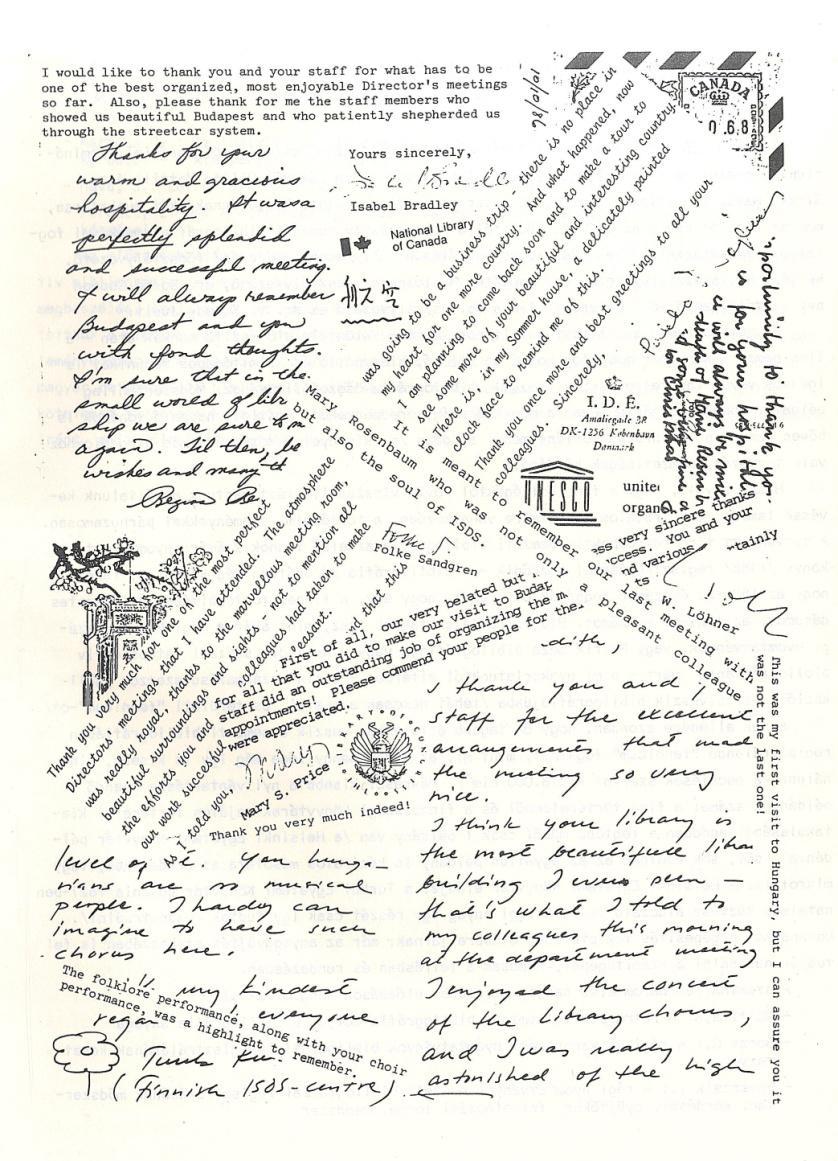 I would like to thank you and your staff for what has to be
one of the best organized, most enjoyable Director's meetings
so far. Also, please thank for me the staff members who
showed us beautiful Budapest and who patiently shepherded us
through the streetcar system.
Yours sincerely,
Isabel Bradley
National Library
of Canada
Thanks for your
warm and gracious
hospitality. It was a
perfectly splendid
and successful meeting.
I will always remember
Budapest and you
with fond thoughts.
I'm sure that in the
small world of libr
ship we are sure to m
again. Til then, be
wishes and many t
CANADA
068
78/01/01
was going to be a business trip, there is no place in
my heart for one more country. And what happened, now
I am planning to come back soon and to make a tour to
see some more of your beautiful and interesting country.
There is, in my Sommer house, a delicately painted
clock face to remind me of this.
Thank you once more and best greetings to all your
colleagues.
Sincerely,
I.D.E.
Amaliegade 38
DK-1256 København
Danmark
It is meant to remember our last meeting with
Mary Rosenbaum who was not only a pleasant colleague
but also the soul of ISDS.
UNESCO
unite
organ
portunity to thank you
is for your help! He
u will always be nice
ess very sincere thanks
ccess. You and your
nd various
tainly
W. Löhner
Folke Sandgren
Thank you very much for one of the most perfect
Directors' meetings that I have attended. The atmosphere
was really royal, thanks to the marvellous meeting room,
beautiful surroundings and sights, not to mention all
the efforts you and colleagues had taken to make
our work succesful easant.
As I told you nd that this
First of all, our very belated but
for all that you did to make our visit to Budap
staff did an outstanding job of organizing the m
appointments! Please commend your people for the
were appreciated.
Mary
Mary S. Price
LIBRARY OF CONGRESS
Thank you very much indeed!
This was my first visit to Hungary, but I can assure you it
was not the last one!
dith,
I thank you and your
staff for the excellent
arrangements that made
the meeting so very
nice.
I think your library is
the most beautiful libra
building I have seen —
that's what I told to
my colleagues this morning
at the department meeting
I enjoyed the concert
of the library chorus,
and I was really
astonished of the high
level of it. You hunga-
rians are so musical
people. I hardly can
imagine to have such
chorus here.
my kindest
regards everyone
(Finnish ISDS-centre)
The folklore performance, along with your choir
performance, was a highlight to remember.